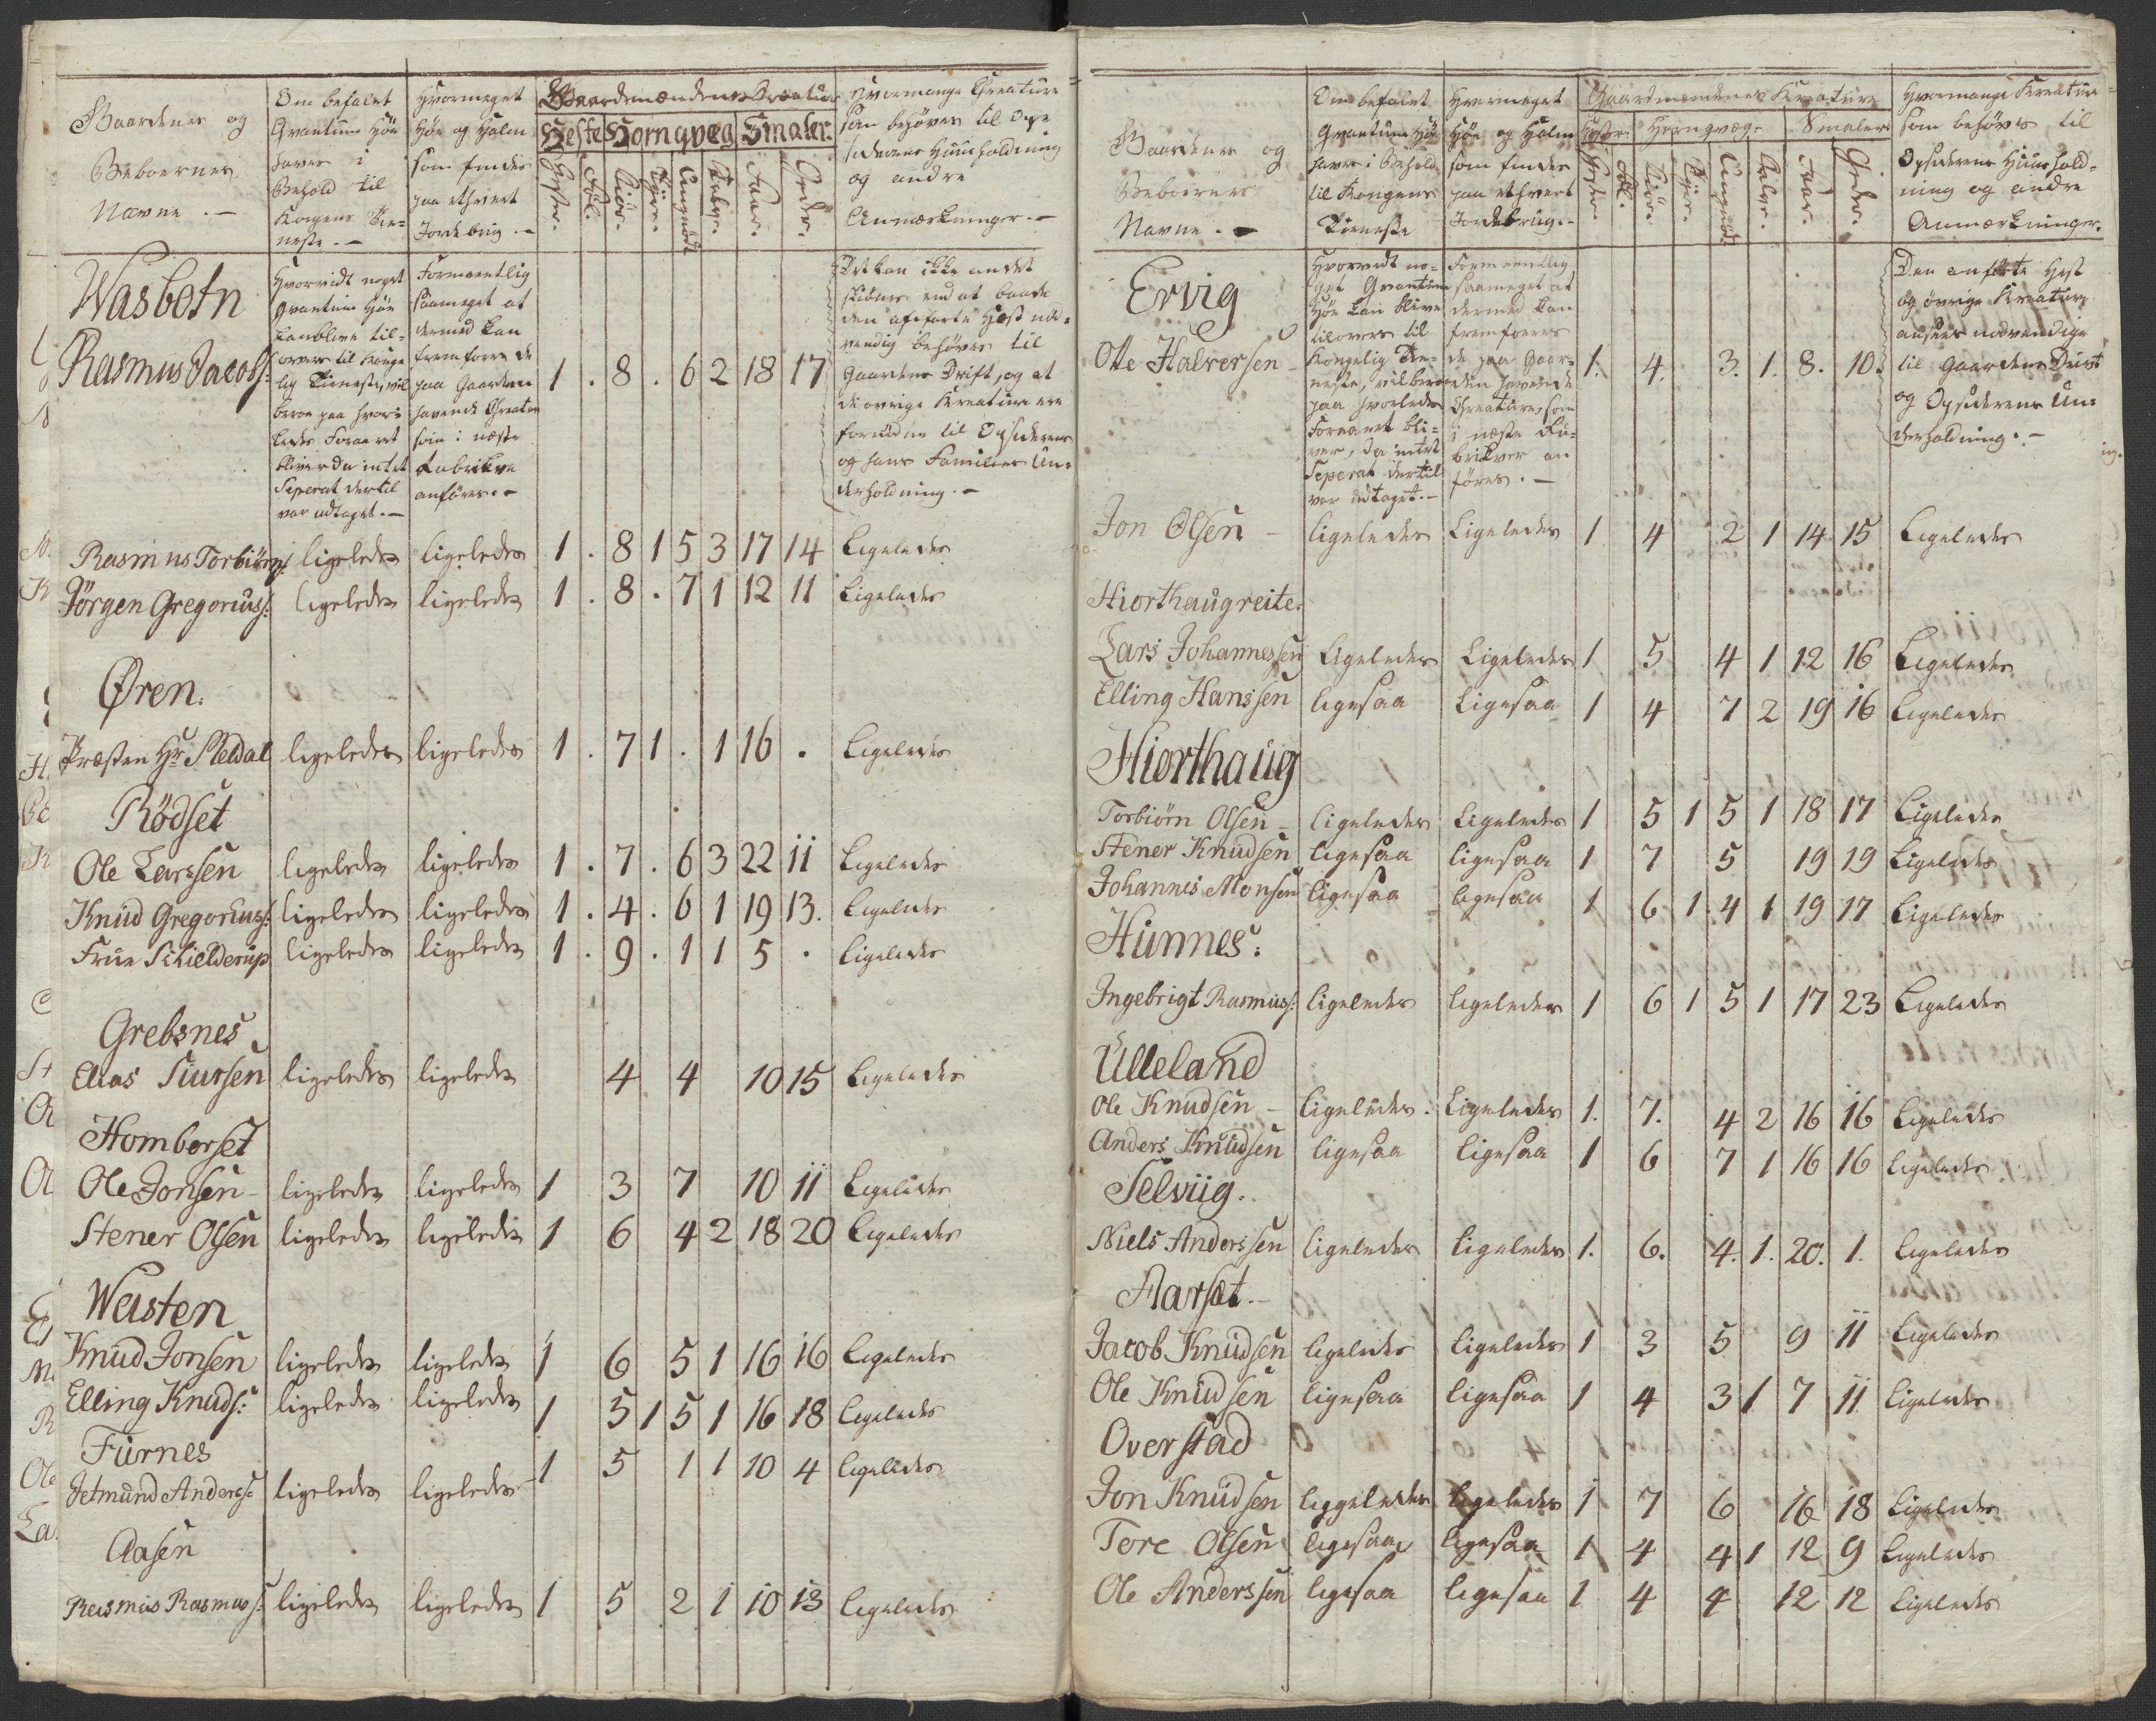 Gaardenes og
Beboernes
Navne . –
Om befalet
Qvantum Höe
haves i
Behold til
Kongens Tie=
neste . –
Hvormeget
Höe og Halm
som findes
paa ethvert
Jordebrug –
Gaardmændenes Creature
Heste Hornqvæg Smaler.
Hester. Föl. Kiör. Tÿre. Ungnöd Kalve. Faar. Geder.
Hvormange Creature
som behöves til Opsidernes Huusholdning
og andre
Anmærkninger. –
Wasbotn
Rasmus Jacobs:
Hvorvidt noget
Qvantum Höe
kan blive til=
overs til Konge
lig Tieneste, vil
beroe paa hvor=
ledes Foraaret
bliver da intet
Seperat dertil
var udtaget. –
Formeentlig
saameget at
dermed kan
fremföres de
paa Gaarden
havende Creature
som i næste
Rubrikve
anföres. –
1 . 8 . 6 2 18 17
Det kan ikke andet
skiönes end at baade
den anförte Hest nöd=
vendig behöves til
Gaardens Drift, og at
de övrige Kreature ere
fornödne til Opsiderens
og hans Families Un=
derholdning. –
Rasmus Torbiörns: ligeledes ligeledes 1 . 8 1 5 3 17 14 Ligeledes
Jörgen Gregoriuss: ligeledes ligeledes 1 . 8 . 7 1 12 11 Ligeledes
Øren.
Præsten Hr Meldal ligeledes ligeledes 1 . 7 1 . 1 16 . Ligeledes
Rödset
Ole Larssen ligeledes ligeledes 1 . 7 . 6 3 22 11 Ligeledes
Knud Gregoriuss: ligeledes ligeledes 1 . 4 . 6 1 19 13. Ligeledes
Frue Schielderup ligeledes ligeledes 1 . 9 . 1 1 5 . Ligeledes
Grebsnes
Elias Siursen ligeledes ligeledes 4 4 10 15 Ligeledes
Homborset
Ole Jonsen – ligeledes ligeledes 1 3 7 10 11 Ligeledes
Stener Olsen ligeledes ligeledes 1 6 4 2 18 20 Ligeledes
Weisten
Knud Jonsen ligeledes ligeledes 1 6 5 1 16 16 Ligeledes
Elling Knuds: ligeledes ligeledes 1 5 1 5 1 16 18 Ligeledes
Furnes
Jetmund Anderss: ligeledes ligeledes 1 5 1 1 10 4 ligeledes
Aasen
Rasmus Rasmuss: ligeledes ligeledes 1 5 2 1 10 13 Ligeledes
Gaardenes og
Beboernes
Navne . –
Om befalet
Qvantum Höe
haves i Behold
til Kongens
Tieneste
Hvormeget
Höe og Halm
som findes
paa ethvert
Jordebrug. –
Gaardmændenes Kreature
Heste: Hornqvæg. Smaler
Hester. Föl. Kiör. Tÿre. Ungnöd. Kalve. Faar. Geder.
Hvormange Kreature
som behöves til
Opsidernes Huushold=
ning og andre
Anmærkninger.
Ervig
Otte Halversen –
Hvorvidt no=
get Qvantum
Höe kan blive
tilovers til
Kongelig Tie=
neste, vil beroe
paa hvorledes
Foraaret bli=
ver, da intet
Seperat dertil
var udtaget. –
Formeentlig
saameget at
dermed kan
fremföres
de paa Gaar=
den havende
Creature, som
i næste Ru=
brikver an
föres . –
1. 4. 3. 1. 8. 10.
Den anförte Hest
og övrige Kreature
ansees nödvendige
til Gaardens Drivt
og Opsiderens Un=
derholdning. –
Jon Olsen – ligeledes Ligeledes 1 4 2 1 14 15 Ligeledes
Hiorthaugreite.
Lars Johannessen Ligeledes Ligeledes 1 5 4 1 12 16 Ligeledes
Elling Hanssen ligesaa Ligesaa 1 4 7 2 19 16 Ligeledes
Hiorthaug
Torbiörn Olsen – ligeledes Ligeledes 1 5 1 5 1 18 17 Ligeledes
Stener Knudsen ligesaa ligesaa 1 7 5 19 19 Ligeledes
Johannes Monsen ligesaa ligesaa 1 6 1 4 1 19 17 Ligeledes
Hunnes:
Ingebrigt Rasmuss: ligeledes ligeledes 1 6 1 5 1 17 23 Ligeledes
Ulleland
Ole Knudsen – ligeledes. Ligeledes 1. 7. 4 2 16 16 Ligeledes
Anders Knudsen ligesaa ligesaa 1 6 7 1 16 16 Ligeledes
Selviig.
Niels Anderssen ligeledes ligeledes 1. 6. 4. 1. 20. 1. Ligeledes
Aarset. –
Jacob Knudsen ligeledes ligeledes 1 3 5 9 11 Ligeledes
Ole Knudsen ligesaa ligesaa 1 4 3 1 7 11 Ligeledes
Overstad
Jon Knudsen liggeledes ligeledes 1 7 6 16 18 Ligeledes
Tore Olsen ligesaa ligesaa 1 4 4 1 12 9 Ligeledes
Ole Anderssen ligesaa ligesaa 1 4 4 12 12 Ligeledes